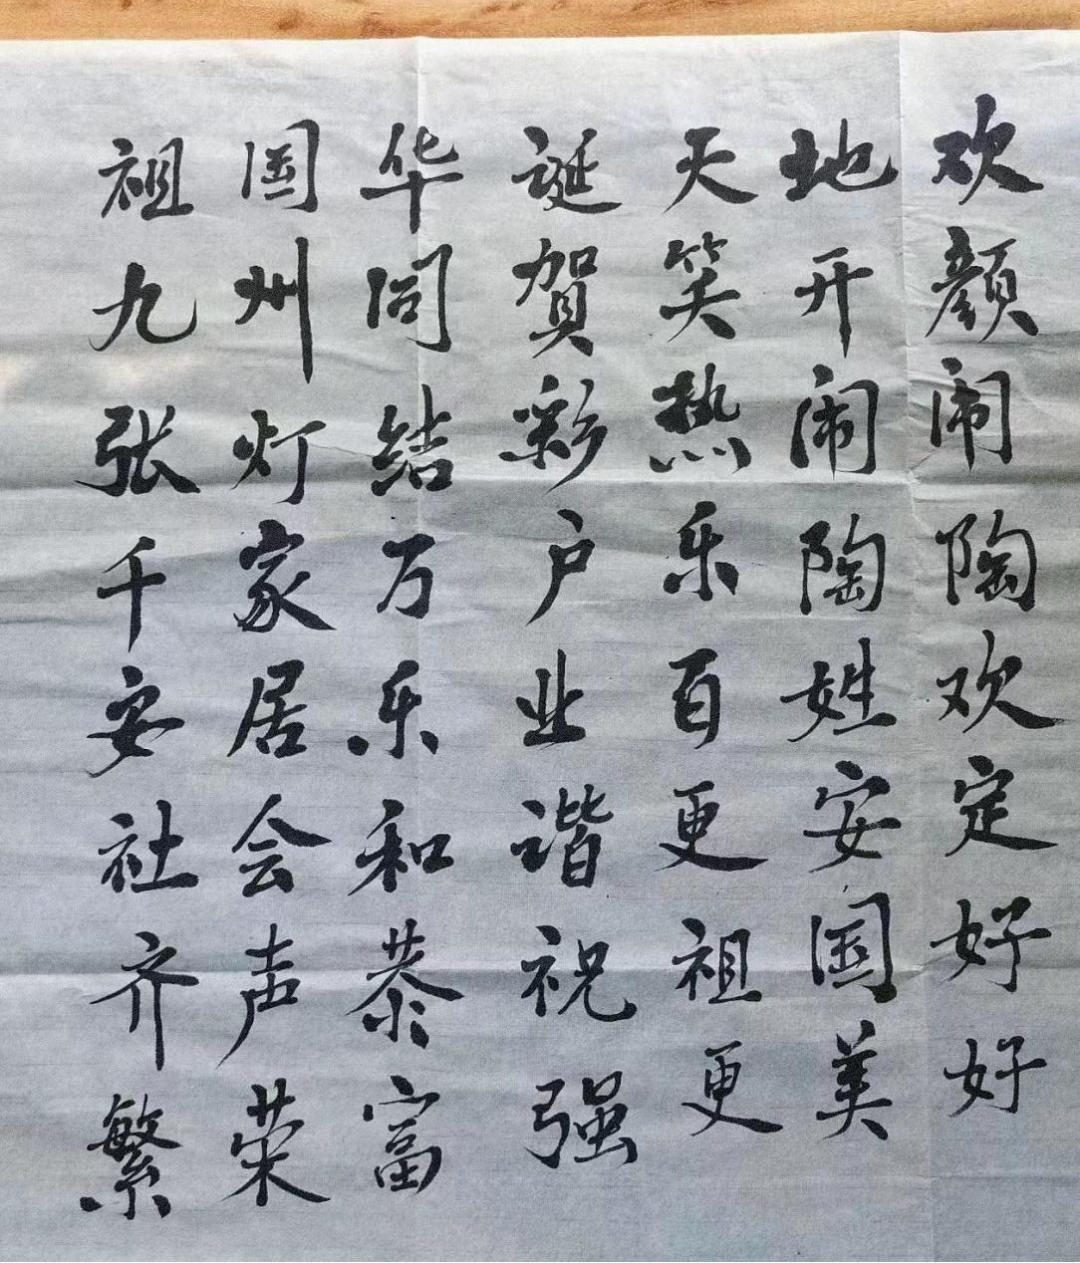 祖国华诞天地欢
九州同贺笑开颜
张灯结彩热闹闹
千家万户乐陶陶
安居乐业百姓欢
社会和谐更安定
齐声恭祝祖国好
繁荣富强更美好